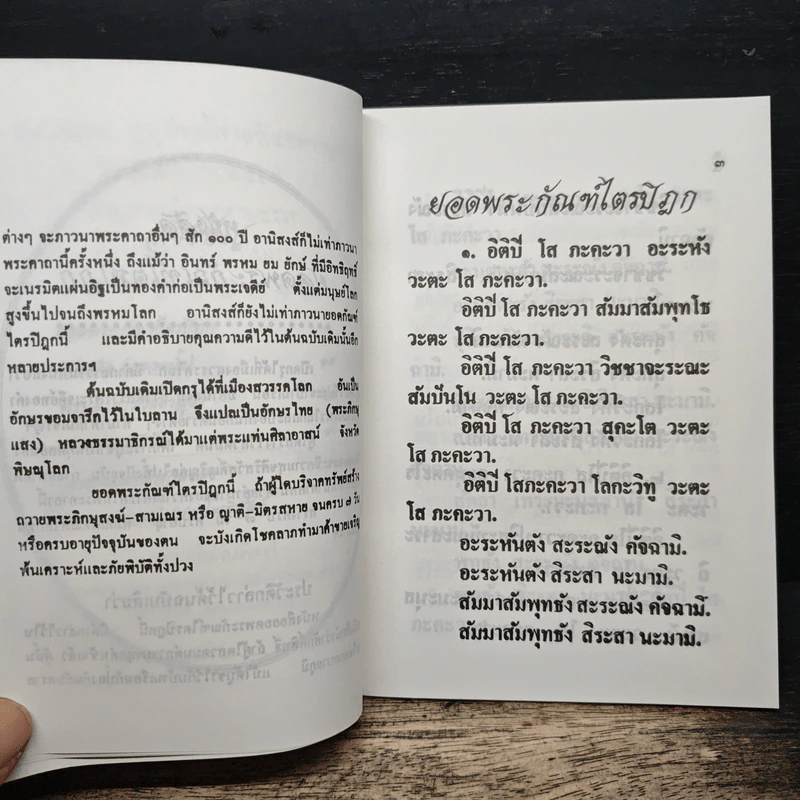 ต่างๆ จะภาวนาพระคาถาอื่นๆ สัก ๑๐๐ ปี อานิสงส์ก็ไม่เท่าภาวนา
พระคาถานี้ครั้งหนึ่ง ถึงแม้ว่า อินทร์ พรหม ยม ยักษ์ ที่มีอิทธิฤทธิ์
จะเนรมิตแผ่นอิฐเป็นทองคำก่อเป็นพระเจดีย์ ตั้งแต่มนุษย์โลก
สูงขึ้นไปจนถึงพรหมโลก อานิสงส์ก็ยังไม่เท่าภาวนายอดกัณฑ์
ไตรปิฎกนี้ และมีคำอธิบายคุณความดีไว้ในต้นฉบับเดิมนั้นอีก
หลายประการฯ
ต้นฉบับเดิมเปิดกรุได้ที่เมืองสวรรคโลก อันเป็น
อักษรขอมจารึกไว้ในใบลาน จึงแปลเป็นอักษรไทย (พระภิกษุ
แสง) หลวงธรรมาธิกรณ์ได้มาแต่พระแท่นศิลาอาสน์ จังหวัด
พิษณุโลก
ยอดพระกัณฑ์ไตรปิฎกนี้ ถ้าผู้ใดบริจาคทรัพย์สร้าง
ถวายพระภิกษุสงฆ์-สามเณร หรือ ญาติ-มิตรสหาย จนครบ ๗ วัน
หรือครบอายุปัจจุบันของตน จะบังเกิดโชคลาภทำมาค้าขายเจริญ
พ้นเคราะห์และภัยพิบัติทั้งปวง
๓
ยอดพระกัณฑ์ไตรปิฎก
๑. อิติปี โส ภะคะวา อะระหัง
วะตะ โส ภะคะวา.
อิติปี โส ภะคะวา สัมมาสัมพุทโธ
วะตะ โส ภะคะวา.
อิติปี โส ภะคะวา วิชชาจะระณะ
สัมปันโน วะตะ โส ภะคะวา.
อิติปี โส ภะคะวา สุคะโต วะตะ
โส ภะคะวา.
อิติปี โสภะคะวา โลกะวิทู วะตะ
โส ภะคะวา.
อะระหันตัง สะระณัง คัจฉามิ.
อะระหันตัง สิระสา นะมามิ.
สัมมาสัมพุทธัง สะระณัง คัจฉามิ.
สัมมาสัมพุทธัง สิระสา นะมามิ.